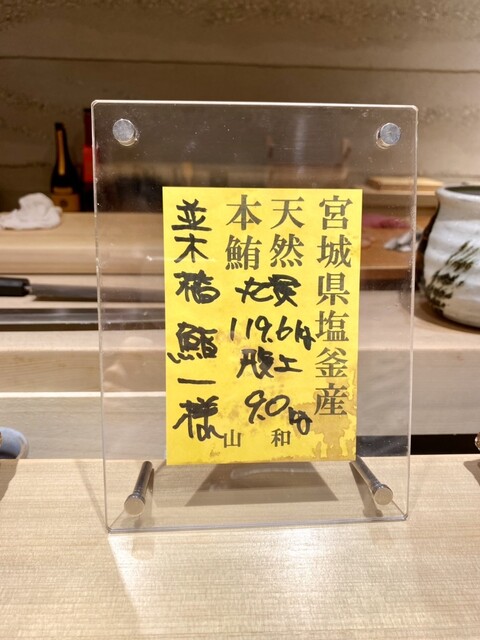 宮城県塩釜産
天然
本鮪
119.6kg
腹上
9.0kg
山和
並木橋
鮨一様